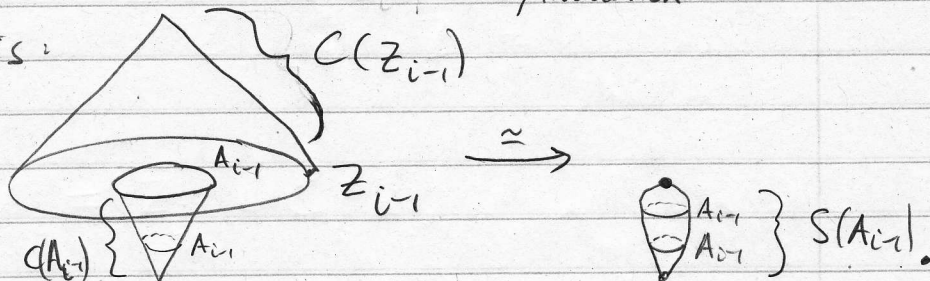 s:
C(Z_{i-1})
A_{i-1}
≃
Z_{i-1}
C(A_{i-1})
A_{i-1}
A_{i-1}
A_{i-1}
S(A_{i-1}).